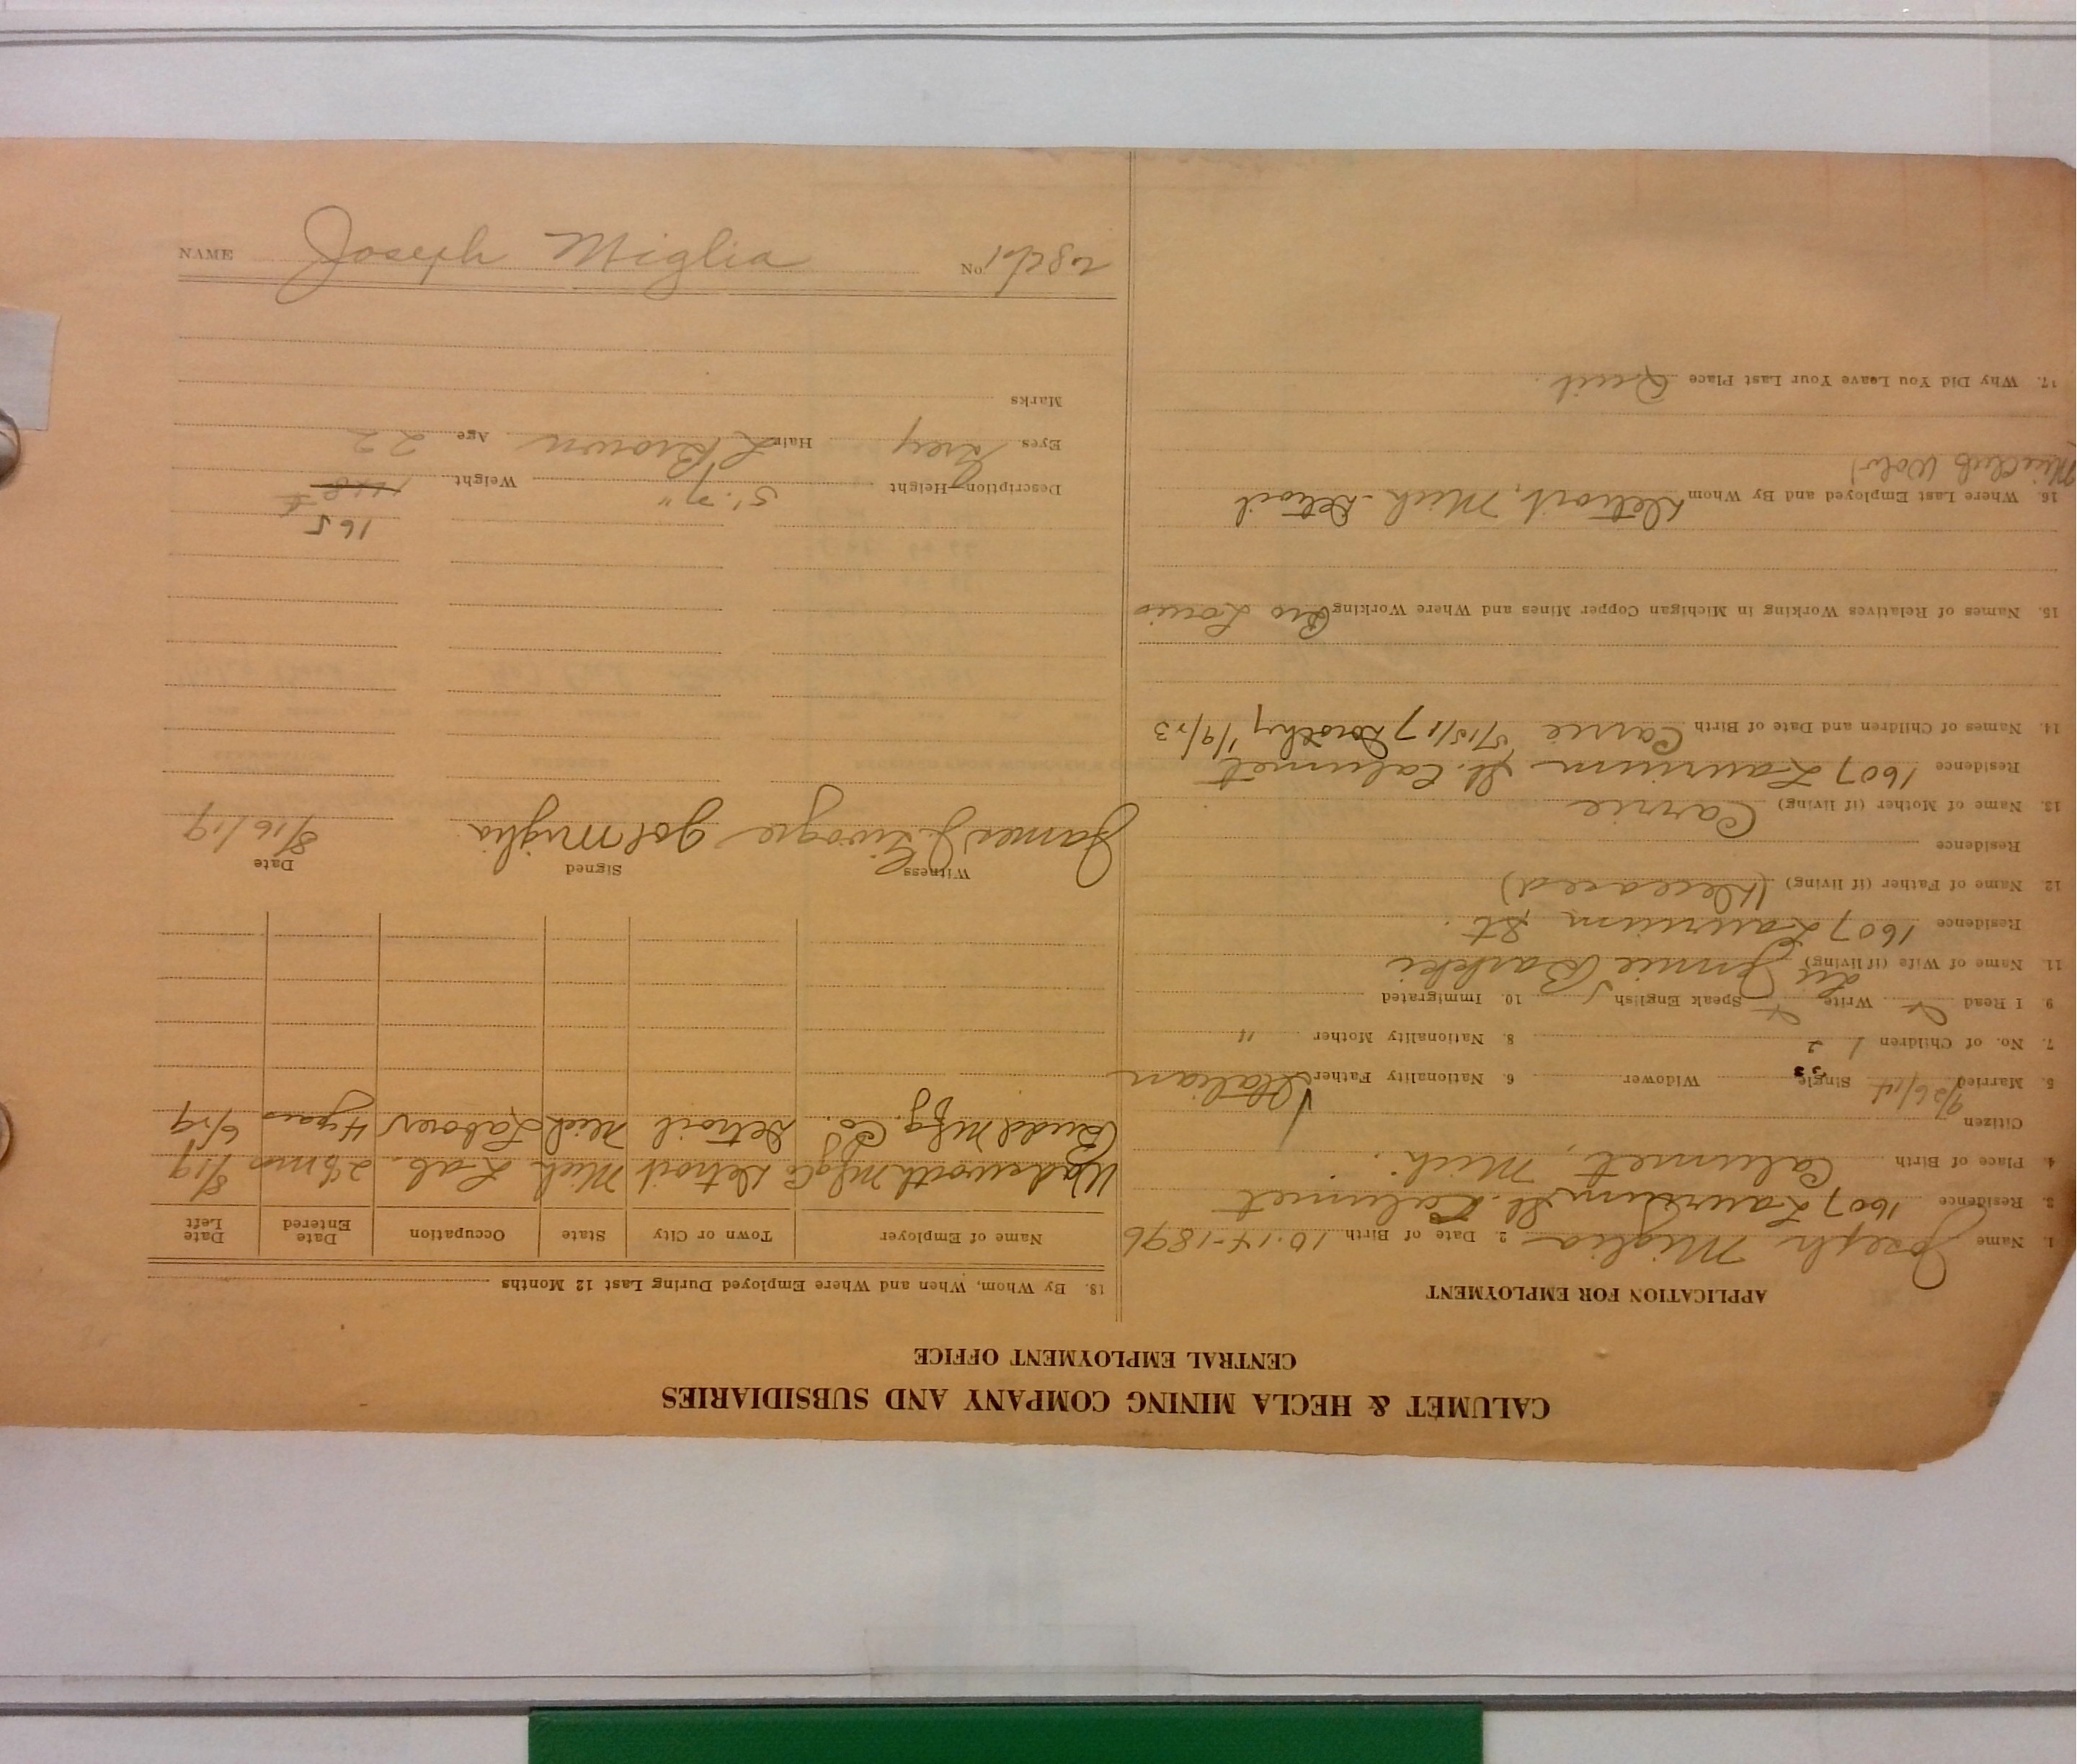 CALUMET & HECLA MINING COMPANY AND SUBSIDIARIES
CENTRAL EMPLOYMENT OFFICE
APPLICATION FOR EMPLOYMENT
1. Name Joseph Miglia 2. Date of Birth 10-14-1896
3. Residence 1607 Laurium St. Calumet
4. Place of Birth Calumet, Mich.
Citizen
5. Married Single Widower 6. Nationality Father Italian
7. No. of Children 1 2 8. Nationality Mother "
9. I Read Write Speak English 10. Immigrated
11. Name of Wife (if living) Jennie
Residence 1607 Laurium St.
12. Name of Father (if living) (Deceased)
Residence
13. Name of Mother (if living) Carrie
Residence 1607 Laurium St. Calumet
14. Names of Children and Date of Birth Carrie 5/15/17 Dorothy 1/9/23
15. Names of Relatives Working in Michigan Copper Mines and Where Working Bro Louis
16. Where Last Employed and By Whom Detroit, Mich - Detroit
17. Why Did You Leave Your Last Place Quit.
18. By Whom, When and Where Employed During Last 12 Months
Name of Employer Town or City State Occupation Date Entered Date Left
Wadsworth Mfg Co Detroit Mich Lab. 8/19
Budd Mfg. Co. Detroit Mich Laborer 4 years
Witness Signed Date
James Joe Miglia 8/16/19
165
Description—Height 5' 7" Weight 148
Eyes Grey Hair L Brown Age 22
Marks
NAME Joseph Miglia No.